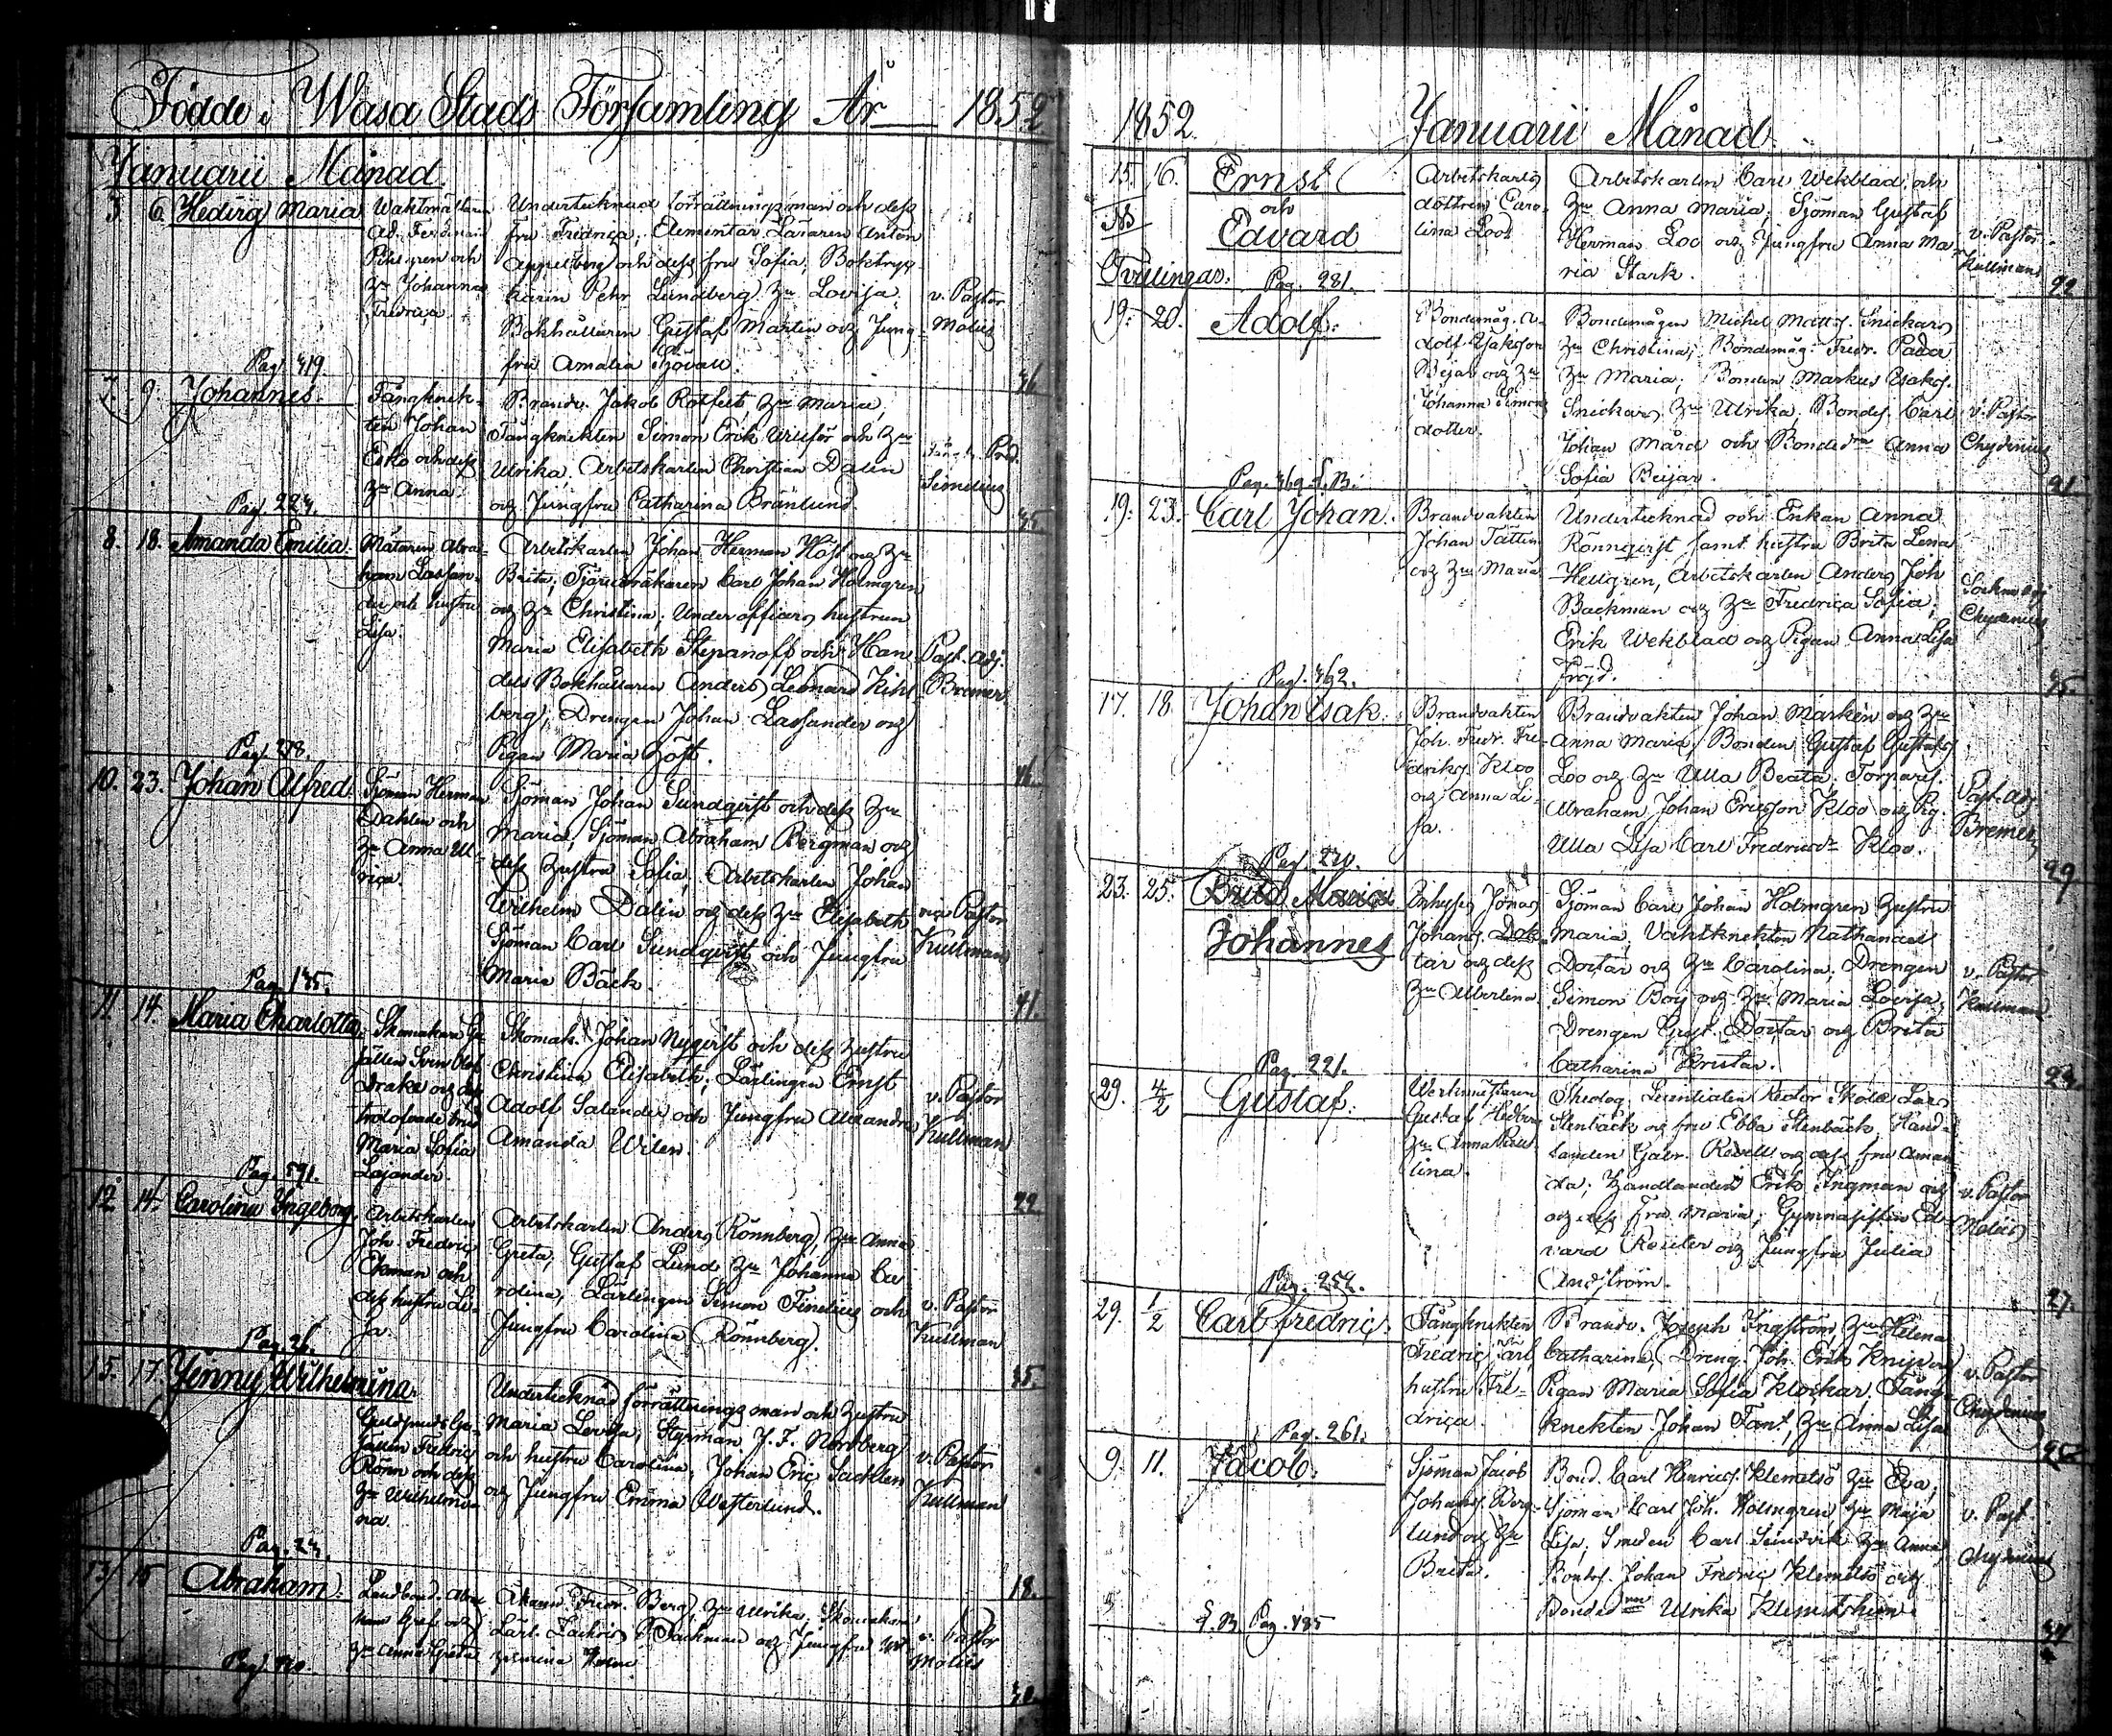 Födde i Wasa Stads Församling År 1852
Januarii Månad.
3. 6. Hedvig Maria
Waktmästaren
Ad. Ferdinand
och
Hu Johanna
Fredrica.
Undertecknad förrättningsman och dess
fru Fredrica; Elementar Läraren Anton
Appelberg och dess fru Sofia, Boktryc-
karen Pehr Lundberg Hu Lovisa,
Bokhållaren Gustaf Martin och Jung-
fru Amalia Sjövall.
v. Pastor
Molin
Pag. 419.
36.
7. 9. Johannes.
Fångknek-
ten Johan
Esko och dess
Hu Anna.
Brandv. Jakob Rotfelt, Hu Maria,
Fångknekten Simon Erik Willför och Hu
Ulrika, Arbetskarlen Christian Dalin
och Jungfru Catharina Brånlund.
Pred.
Simelius
Pag. 224.
35.
8. 18. Amanda Emilia.
Mätaren Abra-
ham Lassan-
der och hustru
Lisa.
Arbetskarlen Johan Herman Höst och Hu
Brita; Carl Johan Holmgren
och Hu Christina; Underofficers hustrun
Maria Elisabeth Stepanoff och Han-
dels Bokhållaren Anders Leonard Kihl-
berg; Drengen Johan Lassander och
Pigan Maria Höst.
Past. Adj.
Bremer
Pag. 278.
46.
10. 23. Johan Alfred.
Sjöman Herman
Dahlen och
Hu Anna Ul-
rica.
Sjöman Johan Sundqvist och dess Hu
Maria, Sjöman Abraham Bergman och
dess Hustru Sofia, Arbetskarlen Johan
Wilhelm Dalin och dess Hu Elisabeth
Sjöman Carl Sundqvist och Jungfru
Maria Bäck.
vice Pastor
Kullman
Pag. 185.
41.
11. 14. Maria Charlotta,
Skomakare Ge-
sällen Sven Olof
Drake och dess
trolofvade brud
Maria Sofia
Lojander.
Skomak. Johan Nyqvist och dess hustru
Christina Elisabeth; Lärlingen Ernst
Adolf Salander och Jungfru Alexandra
Amanda Wilen.
v. Pastor
Kullman
Pag. 591.
22.
12. 14. Carolina Ingeborg,
Arbetskarlen
Joh. Fredric
Ekman och
dess hustru Li-
sa.
Arbetskarlen Anders Rönnberg, Hu Anna
Greta, Gustaf Lund Hu Johanna Ca-
rolina, Lärlingen Simon Finelius och
Jungfru Carolina Rönnberg.
v. Pastor
Kullman
Pag. 26.
35.
15. 17. Jenny Wilhelmina.
Guldsmeds Ge-
sällen Fredric
Rönn och dess
Hu Wilhelmi-
na.
Undertecknad förrättningsman och Hustru
Maria Lovisa, Styrman J. F. Nordberg
och hustru Carolina, Johan Eric Sacklen
och Jungfru Emma Westerlund.
v. Pastor
Kullman
Pag. 24.
18.
13. 15. Abraham.
Landbond. Abra-
ham Graf och
Hu Anna Greta
Åkaren Fredr. Berg, Hu Ulrika, Skomakare
Lärl. Zachris Backman och Jungfru
v. Pastor
Molin
30.
1852. Januarii Månad.
15. 16. Ernst
och
Edvard
Tvillingar. Pag. 281.
Arbetskarls
dottren Caro-
lina Loo.
Arbetskarlen Carl Wekblad, och
Hu Anna Maria; Sjöman Gustaf
Herman Loo och Jungfru Anna Ma-
ria Stark.
v. Pastor
Kullman
22
19. 20. Adolf.
Bondemåg. A-
dolf Jakobsson
Beijar och Hu
Johanna Simons
dotter.
Bondemågen Michel Matts. Snickars
Hu Christina; Bondemåg. Fredr. Pada
Hu Maria; Bonden Markus Isaks.
Snickars, Hu Ulrika, Bondes. Carl
Johan Mård och Bondedrn Anna
Sofia Beijar.
v. Pastor
Chydenius
Pag. 469 L.B.
21.
19. 23. Carl Johan.
Brandvakten
Johan Tättin
och Hu Maria
Undertecknad och Enkan Anna
Rönnqvist samt hustru Brita Lena
Hellgren, Arbetskarlen Anders Joh.
Backman och Hu Fredrica Sofia,
Erik Wekblad och Pigan Anna Lisa
Fröjd.
Chydenius
Pag. 462.
45.
17. 18. Johan Isak.
Brandvakten
Joh. Fredr. Fre-
driks. Kloo
och Anna Li-
sa.
Brandvakten Johan Markén och Hu
Anna Maria, Bonden Gustaf Gustafs.
Loo och Hu Ulla Beata. Torpares.
Abraham Johan Ericsson Kloo och Pig.
Ulla Lisa Carl Fredricsdr Kloo.
Past. Adj.
Bremer
Pag. 220.
29
23. 25. Brita Maria
Johannes
Inhyses Jonas
Johans. Dok-
tar och dess
Hu Albertina
Sjöman Carl Johan Holmgren Hustru
Maria, Vaktknekten Nathanael
Doctar och Hu Carolina, Drengen
Simon Boy och Hu Maria Lovisa,
Drengen Gust. Doctar och Brita
Catharina
v. Pastor
Kullman
Pag. 221.
24.
29. 4/2 Gustaf.
Werkmästaren
Gustaf Hedberg
Hu Anna
lina.
Theolog. Licentiaten Rector Scholae Lars
Stenbäck och fru Ebba Stenbäck, Hand-
landen Gabr. Revell och dess fru Aman-
da; Handlanden Erik Ingman och
och dess Fru Maria; Gymnasisten Ed-
vard Reuter och Jungfru Julia
Andström.
v. Pastor
Molin
Pag. 252.
27.
29. 1/2 Carl Fredric.
Fångknekten
Fredric Färl
hustru Fre-
drica.
Brandv. Joseph Ingström, Hu Helena
Catharina, Dreng. Joh. Erik Knip och
Pigan Maria Sofia Klockar. Fång-
knekten Johan Fant, Hu Anna Lisa
v. Pastor
Chydenius
Pag. 261.
25
9. 11. Jacob.
Sjöman Jacob
Johans. Berg-
lund och Hu
Brita.
Bond. Carl Henrics. Klemetsö Hu Eva,
Sjöman Carl Joh. Holmgren Hu Maja
Lisa, Smeden Carl Sundvik Hu Anna,
Bondes. Johan Fredric Klemetsö och
Bondedrn Ulrika Klemetsö
v. Past.
Chydenius
L.B. Pag. 485